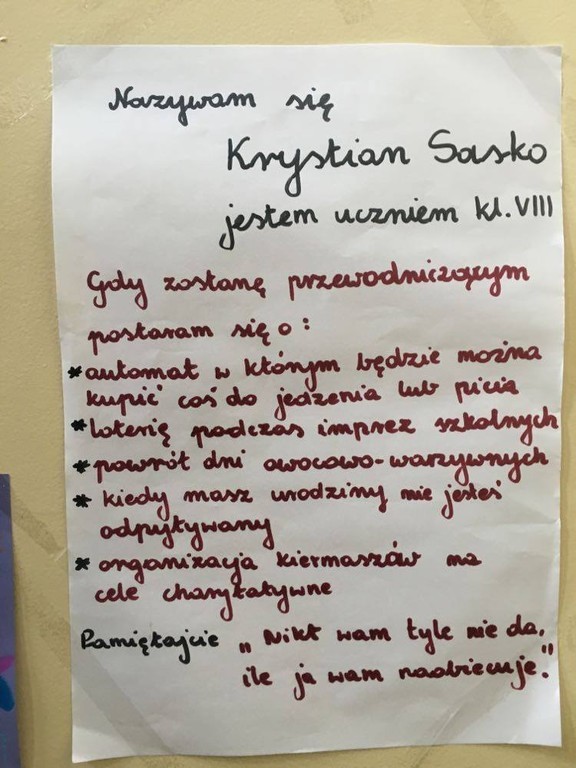 Nazywam się
Krystian Sasko
jestem uczniem kl. VIII
Gdy zostanę przewodniczącym
postaram się o:
* automat w którym będzie można
kupić coś do jedzenia lub picia
* loterię podczas imprez szkolnych
* powrót dni owocowo-warzywnych
* kiedy masz urodziny nie jesteś
odpytywany
* organizacja kiermaszów na
cele charytatywne
Pamiętajcie „Nikt wam tyle nie da,
ile ja wam naobiecuje."